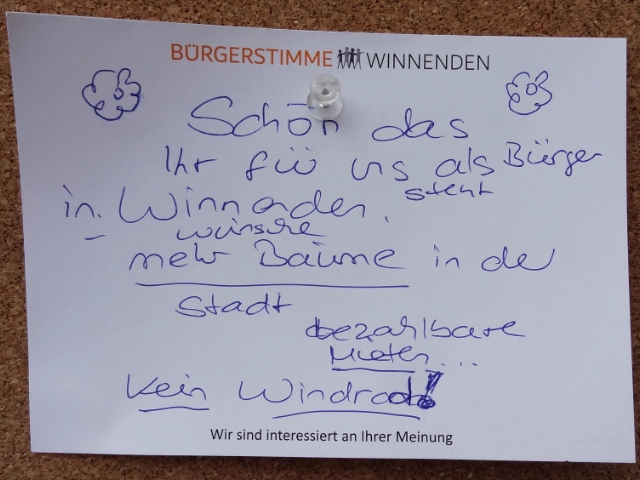 BÜRGERSTIMME WINNENDEN
Schön das
Ihr für uns als Bürger
steht
in Winnenden.
wünsche
mehr Bäume in der
Stadt
bezahlbare
Mieten...
Kein Windrad!
Wir sind interessiert an Ihrer Meinung